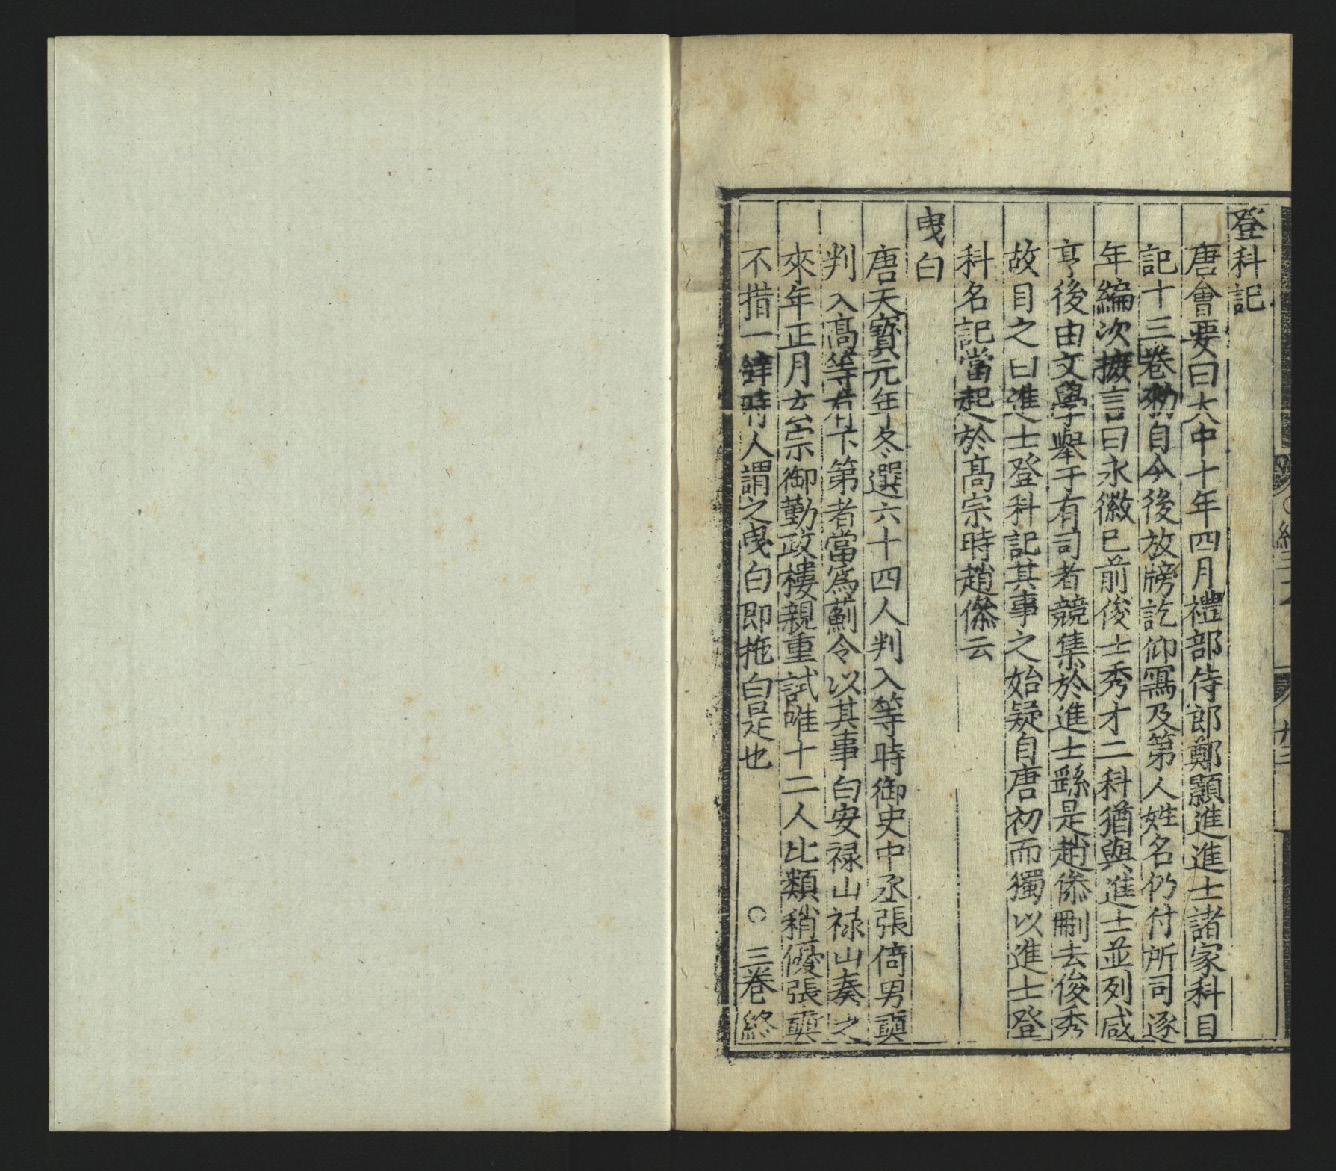 登科記
唐會要曰大中十年四月禮部侍郎鄭顥進進士諸家科目
記十三卷勑自今後放牓訖仰寫及第人姓名仍付所司逐
年編次摭言曰永徽已前俊士秀才二科猶與進士並列咸
亨後由文學舉于有司者競集於進士繇是趙傪刪去俊秀
故目之曰進士登科記其事之始疑自唐初而獨以進士登
科名記當起於高宗時趙傪云
曳白
唐天寶元年冬選六十四人判入等時御史中丞張倚男奭
判入高等有下第者當爲薊令以其事白安禄山禄山奏之
來年正月玄宗御勤政樓親重試唯十二人比類稍優張奭
不措一辭時人謂之曳白即拖白是也 三卷終